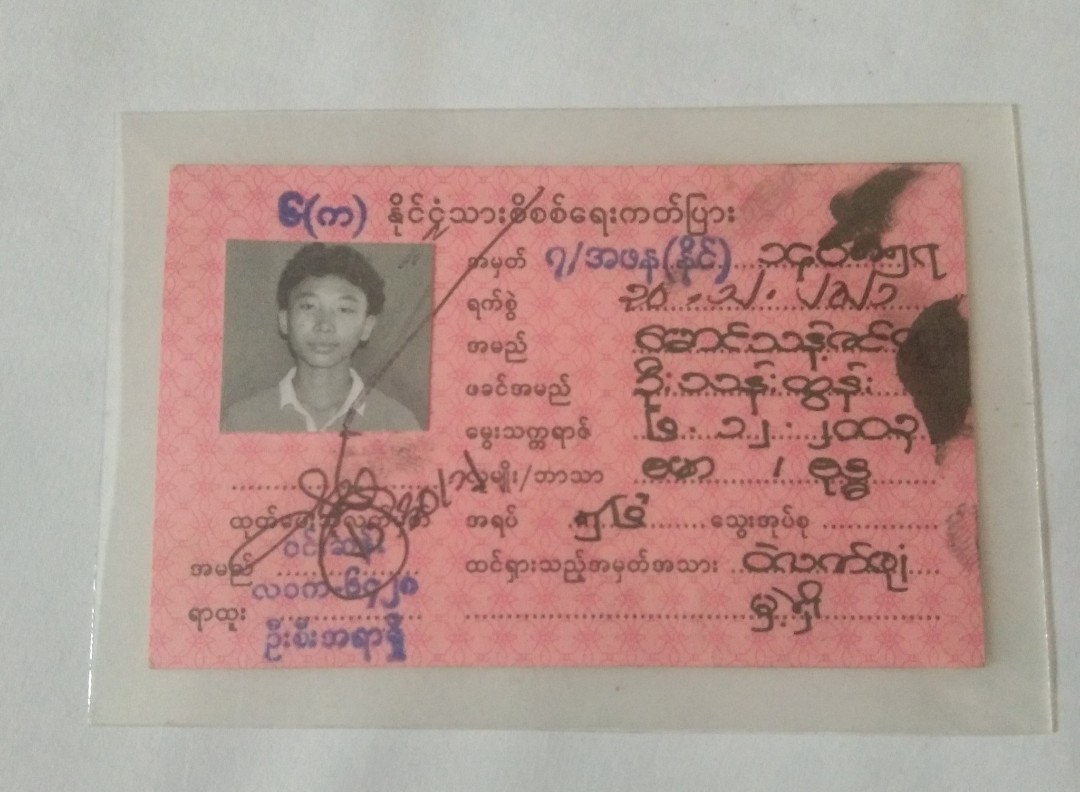 ၆(က) နိုင်ငံသားစိစစ်ရေးကတ်ပြား
အမှတ် ၇/အဖန(နိုင်)
ရက်စွဲ
အမည် မောင်သန့်ဇင်
ဖခင်အမည် ဦးသန်းထွန်း
မွေးသက္ကရာဇ် ၆.၁၂.၂၀၀၃
လူမျိုး/ဘာသာ ဗမာ / ဗုဒ္ဓ
အရပ် ၅'၆" သွေးအုပ်စု
ထင်ရှားသည့်အမှတ်အသား ဝဲလက်ဖျံ
မှဲ့ရှိ
ထုတ်ပေးသူလက်မှတ်
အမည်
လဝက
ရာထူး ဦးစီးအရာရှိ